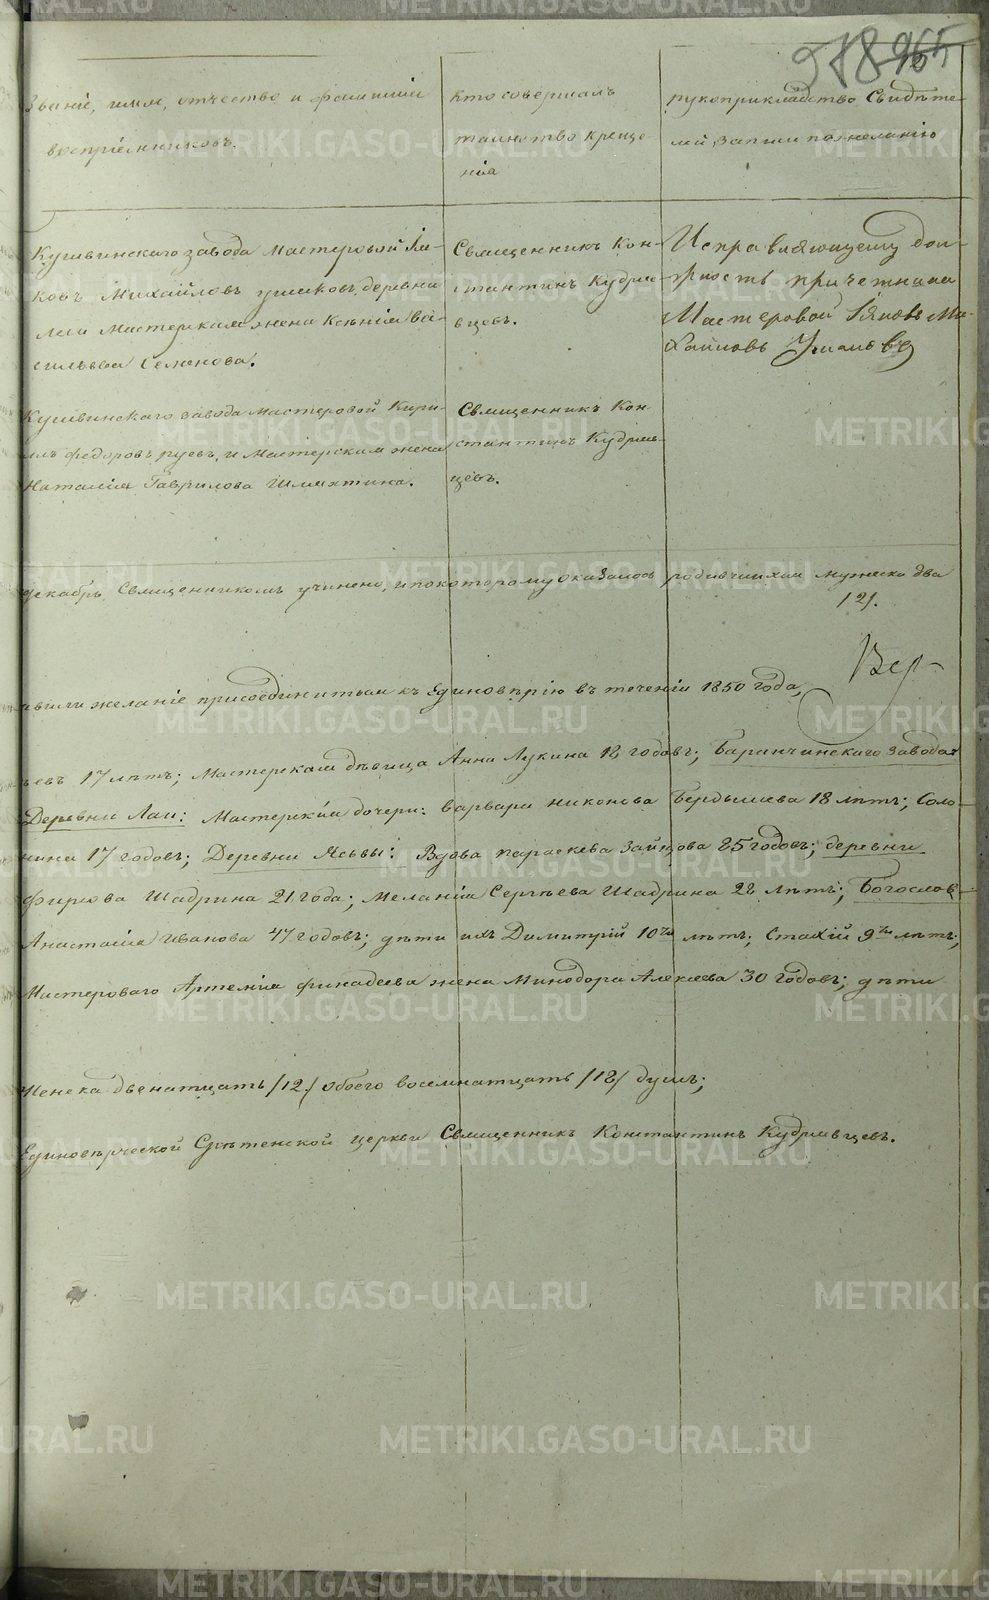 978
Званіе, имя, отчество и фамилія
воспріемниковъ.
Кто совершалъ
таинство креще-
нія
рукоприкладство Свидѣте-
лей записи по желанію
Кушвинскаго завода Мастеровой Іа-
ковъ Михайловъ Ушаковъ, деревни
Лаи Мастерская жена Ксенія Ва-
сильева Семенова.
Священникъ Кон-
стантинъ Кудряв-
цевъ.
Исправляющему дол-
жность причетника
Мастеровой Іяковъ Ми-
хайловъ Ушаковъ
Кушвинскаго завода Мастеровой Кири-
лъ Федоровъ, и Мастерская жена
Наталія Гаврилова Шляхтина.
Священникъ Кон-
стантинъ Кудряв-
цевъ.
декабрь Священникомъ учинено, и по которому оказалось родившихся мужеска два
/2/.
Вер-
явили желаніе присоединиться къ Единовѣрію въ теченіи 1850 года,
евъ 17 лѣтъ; Мастерская дѣвица Анна Лукина 12 годовъ; Баранчинскаго завода
Деревни Лаи: Мастерскія дочери: Варвара Никонова Бердышева 18 лѣтъ; Соло-
нина 17 годовъ; Деревни Ясьвы: Вдова Параскева Зайцова 25 годовъ; деревни
Фирсова Шадрина 21 года; Меланія Сергѣева Шадрина 22 лѣтъ; Богослов-
Анастасія Иванова 47 годовъ; дѣти ихъ Димитрій 10ти лѣтъ; Стахій 9ти лѣтъ;
Мастероваго Артемія Финадеева жена Минодора Алексеева 30 годовъ; дѣти
Женска двенатцать /12/ обоего восемнатцать /18/ душъ;
Единовѣрческой Срѣтенской церкви Священникъ Константинъ Кудрявцевъ.
METRIKI.GASO-URAL.RU